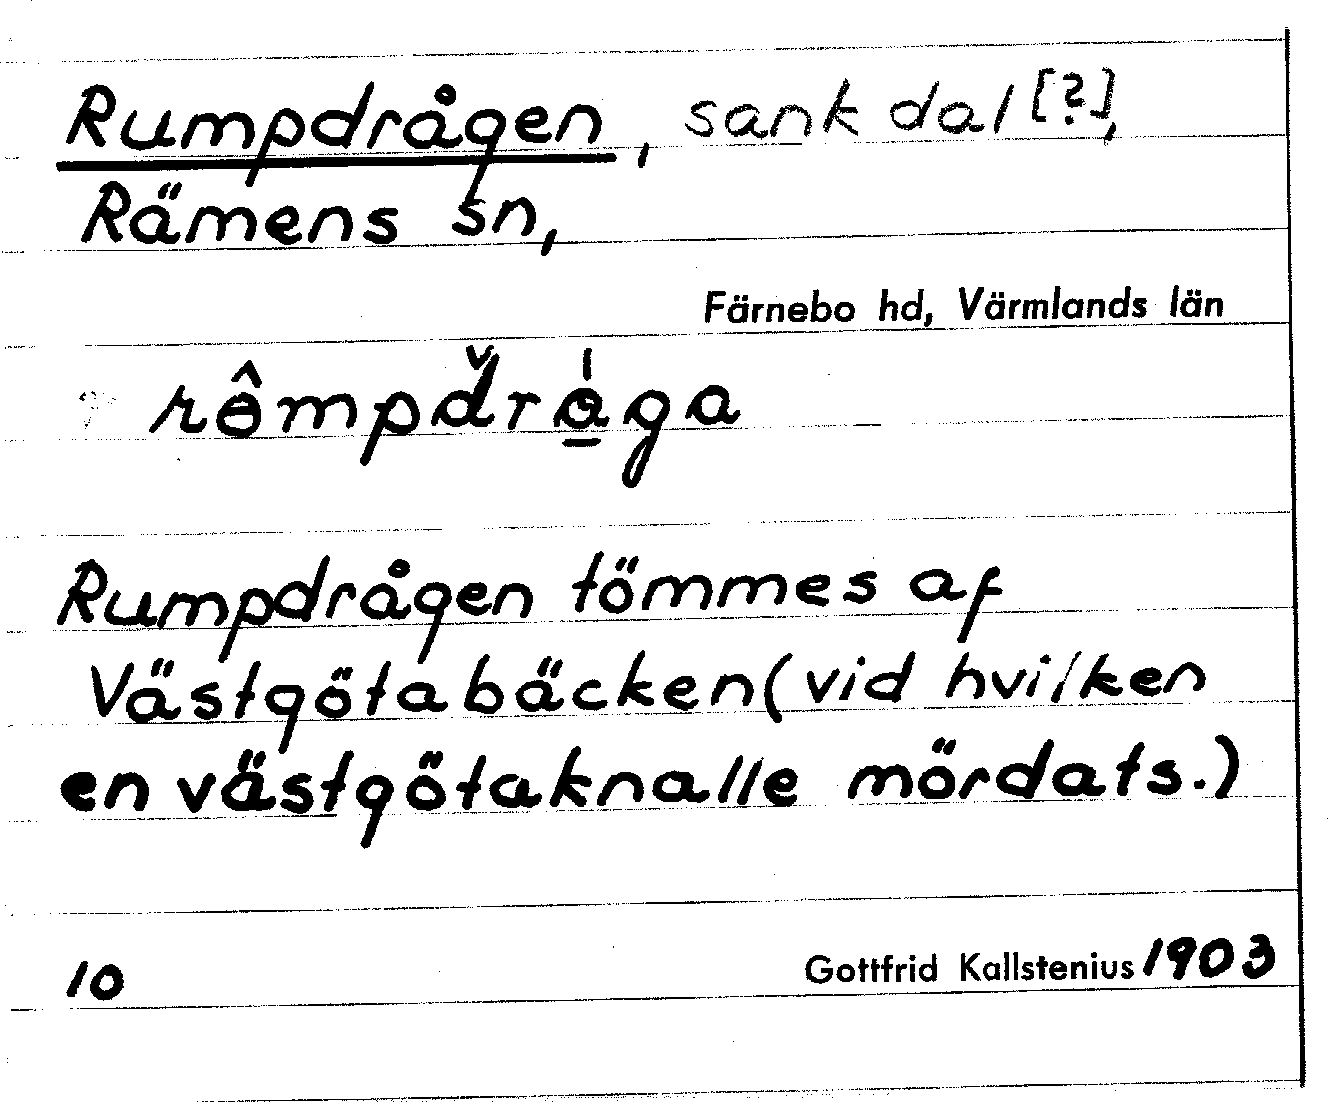 Rumpdrågen, sank dal [?],
Rämens sn,
Färnebo hd, Värmlands län
rômpd̆rá̱ga
Rumpdrågen tömmes af
Västgötabäcken (vid hvilken
en västgötaknalle mördats.)
10 Gottfrid Kallstenius 1903